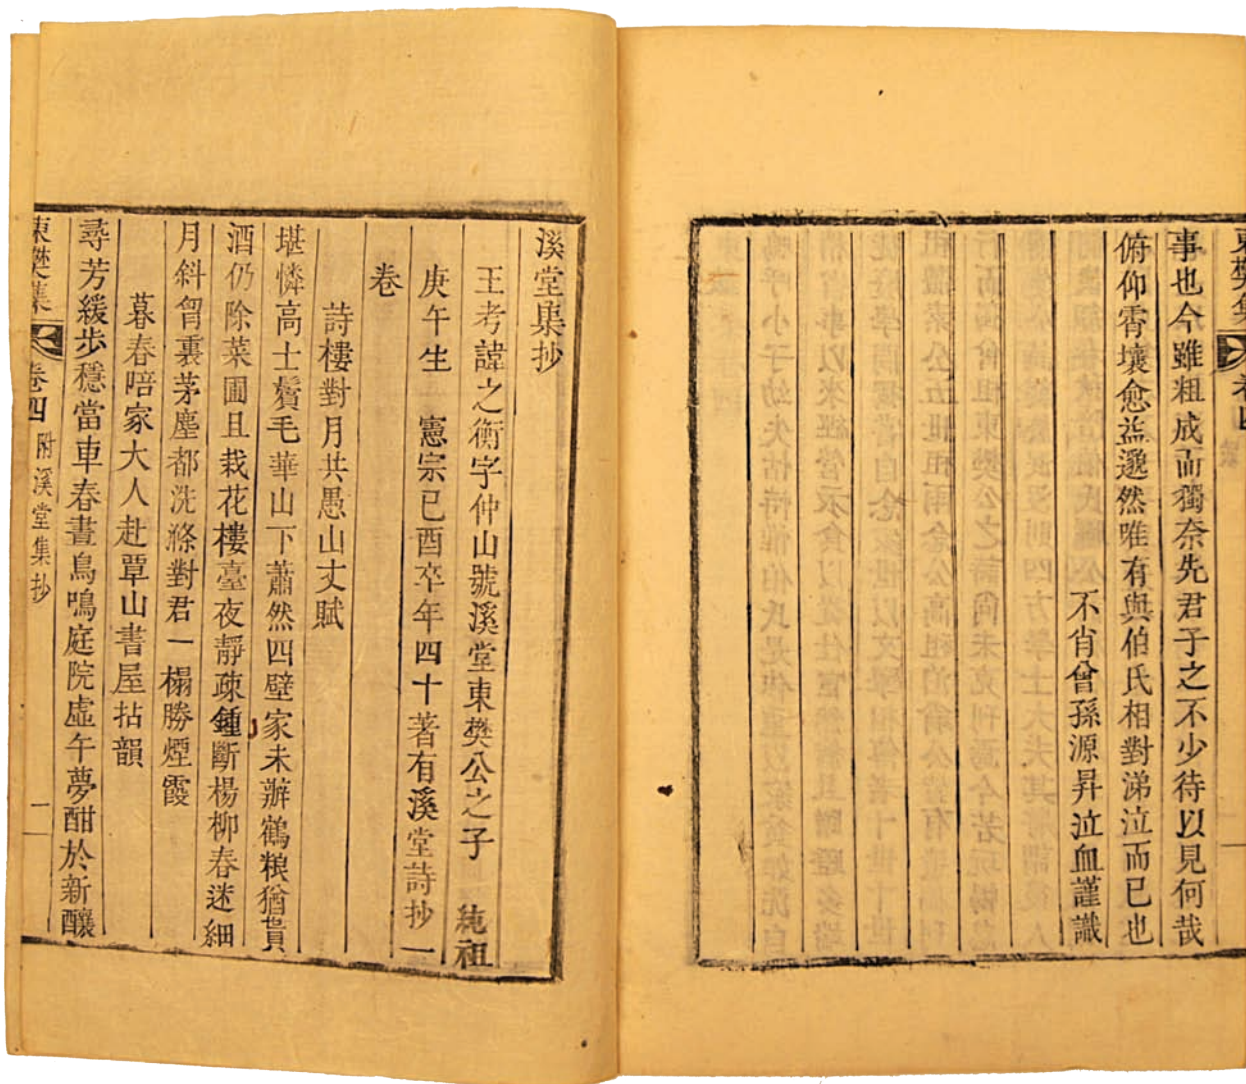 東樊集
卷四
事也今雖粗成而獨奈先君子之不少待以見何哉
俯仰霄壤愈益邈然唯有與伯氏相對涕泣而已也
不肖曾孫源昇泣血謹識
溪堂集抄
王考諱之衡字仲山號溪堂東樊公之子 純祖
庚午生 憲宗己酉卒年四十著有溪堂詩抄一
卷
詩樓對月共愚山丈賦
堪憐高士鬢毛華山下蕭然四壁家未辦鶴粮猶貰
酒仍除菜圃且栽花樓臺夜靜疎鍾斷楊柳春迷細
月斜胷裏茅塵都洗滌對君一榻勝煙霞
暮春陪家大人赴覃山書屋拈韻
尋芳緩步穩當車春晝鳥鳴庭院虛午夢酣於新釀
東樊集
卷四 附溪堂集抄
一